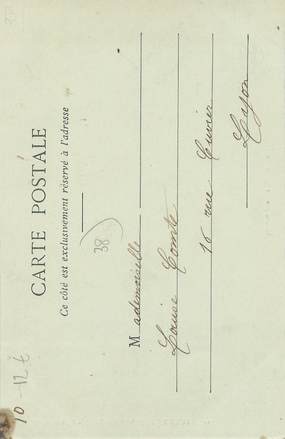 CARTE POSTALE
Ce côté est exclusivement réservé à l'adresse
38
Mademoiselle
Louise Comte
16 rue Cuvier
Lyon